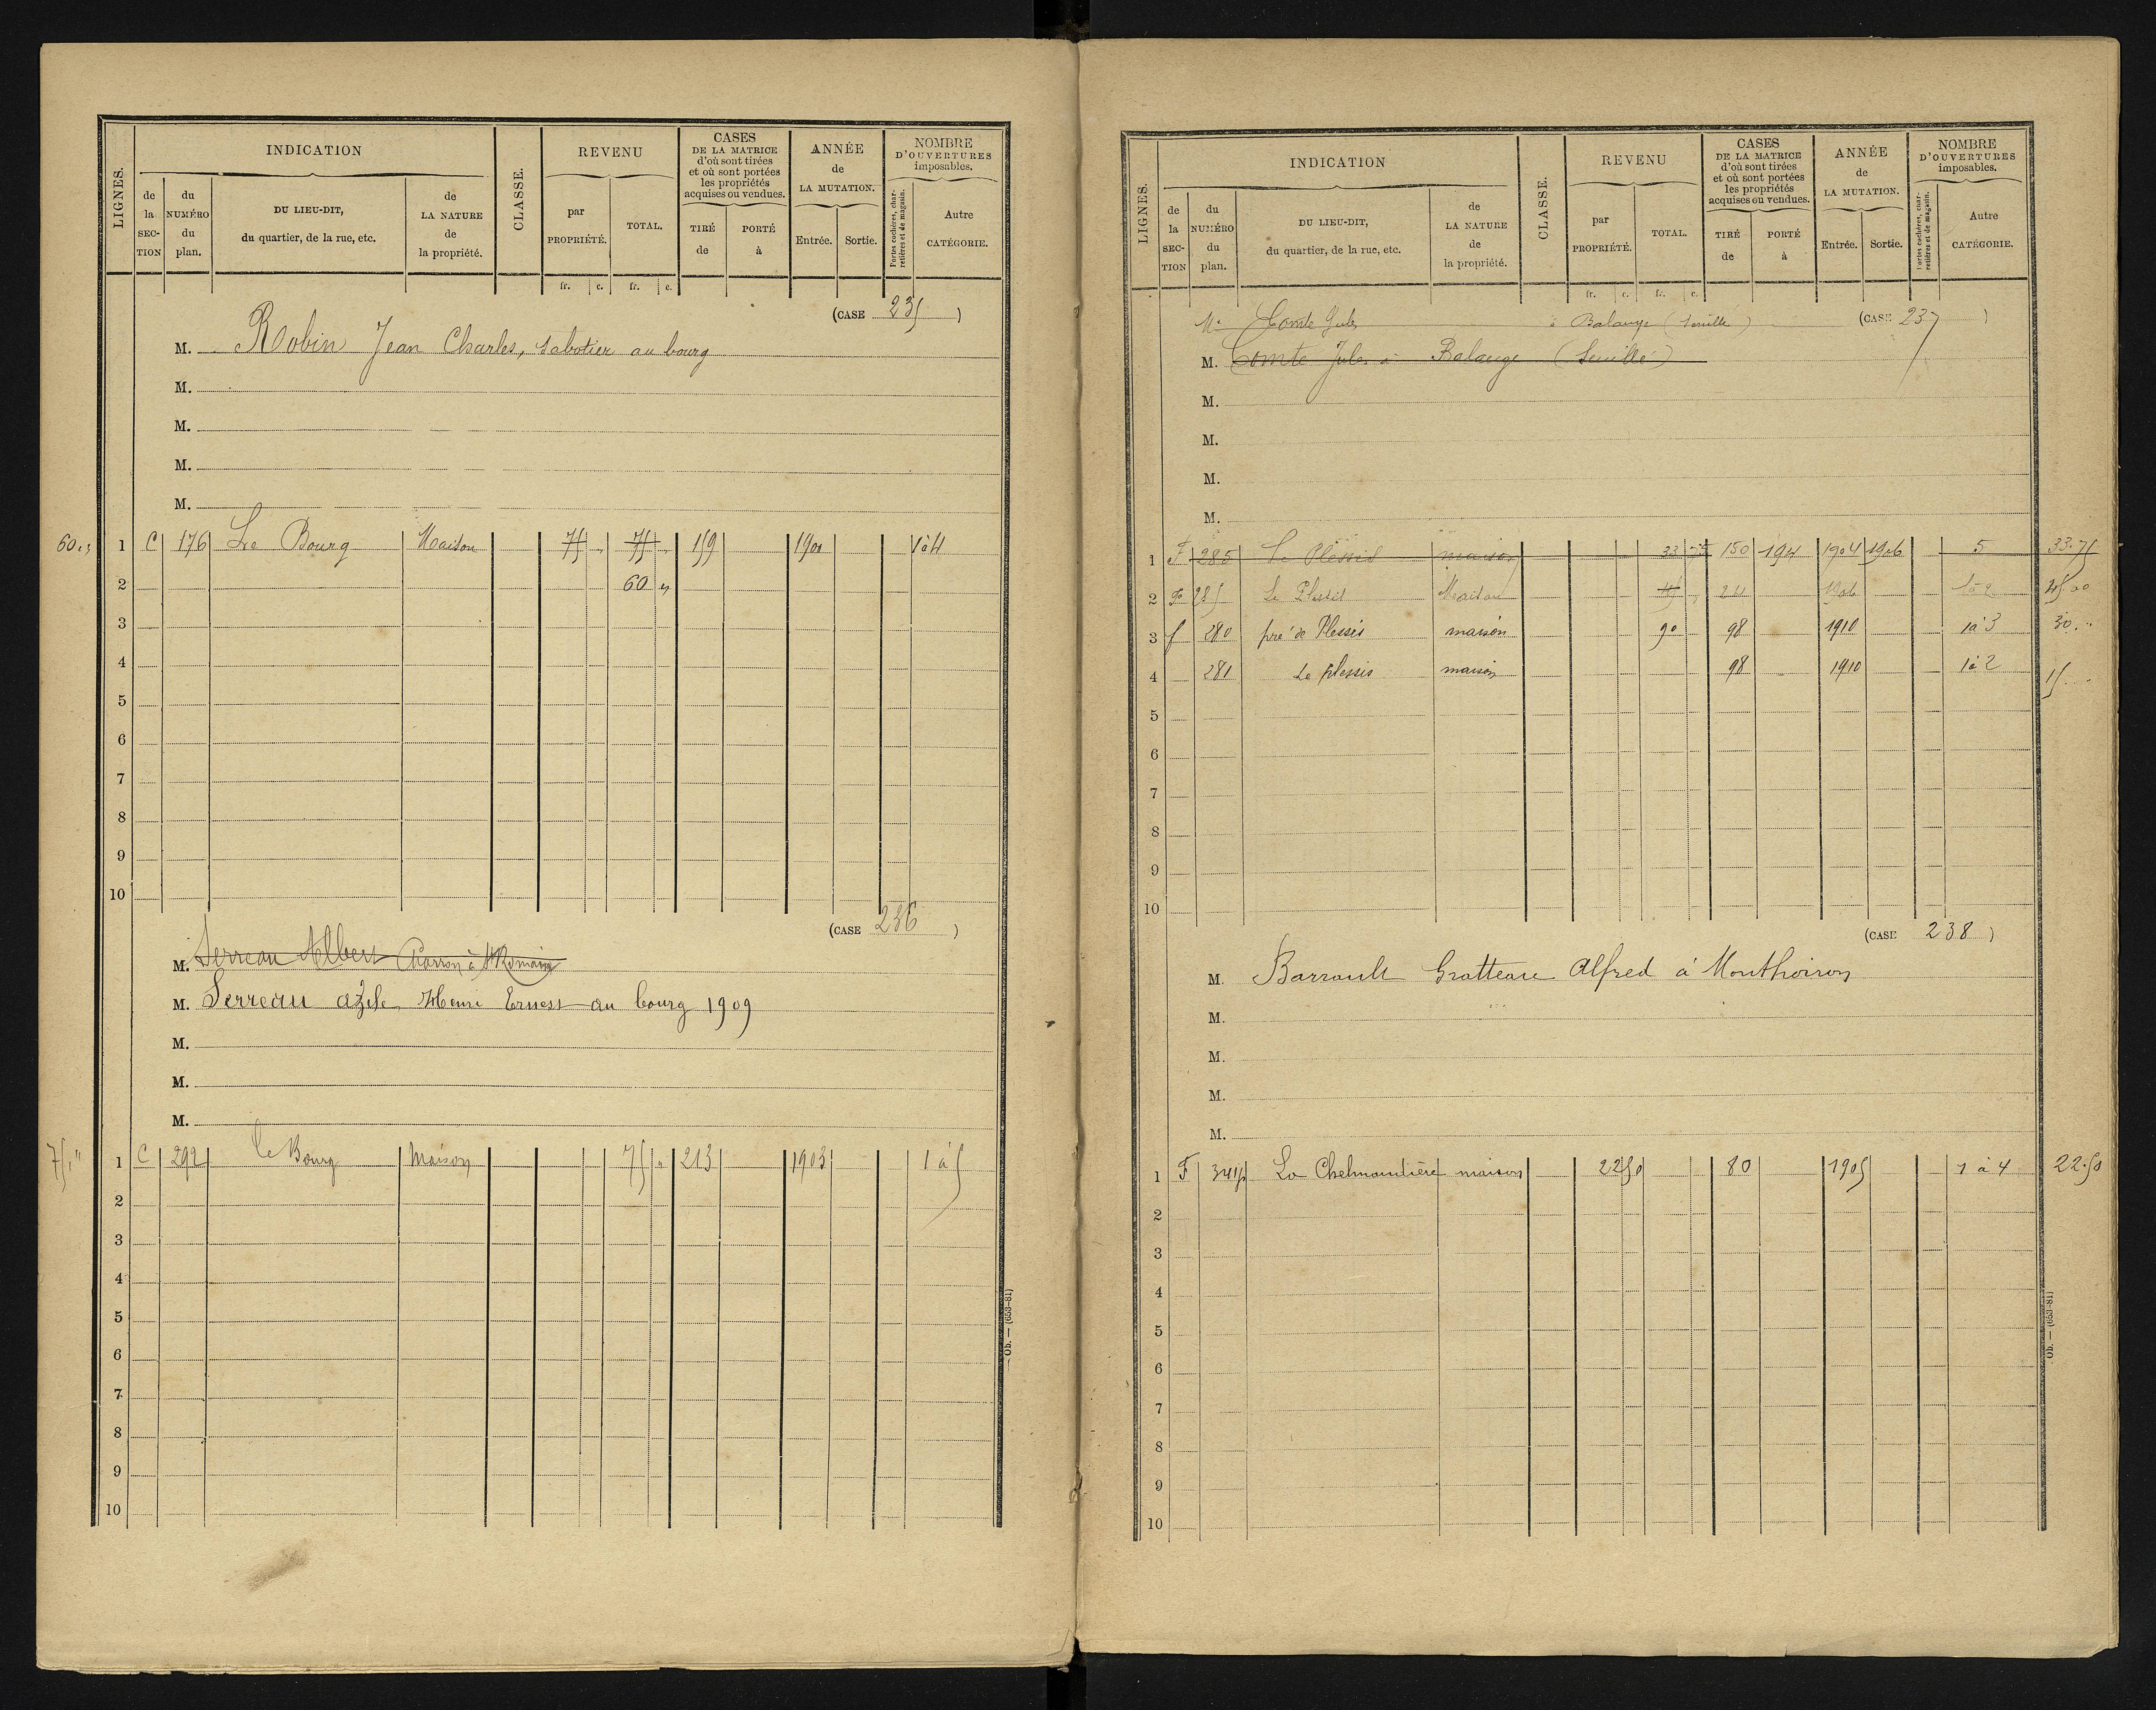 LIGNES. INDICATION CLASSE. REVENU CASES DE LA MATRICE d'où sont tirées et où sont portées les propriétés acquises ou vendues. ANNÉE de LA MUTATION. NOMBRE D'OUVERTURES imposables.
de la SECTION du NUMÉRO du plan. DU LIEU-DIT, du quartier, de la rue, etc. de LA NATURE de la propriété. par PROPRIÉTÉ. TOTAL. TIRÉ de PORTÉ à Entrée. Sortie. Portes cochères, charretières et de magasin. Autre CATÉGORIE.
fr. c. fr. c.
(CASE 235)
M. Robin Jean Charles, sabotier au bourg
M.
M.
M.
M.
60 " 1 C 176 Le Bourg Maison 75 " 75 " 159 1901 1 à 4
2 60 "
3
4
5
6
7
8
9
10
(CASE 236)
M. Serreau Albert Charron à St Romain
M. Serreau Henri Ernest au bourg 1909
M.
M.
M.
75 " 1 C 292 Le Bourg Maison 75 " 213 1903 1 à 5
2
3
4
5
6
7
8
9
10
Ob. — (653-81)
LIGNES. INDICATION CLASSE. REVENU CASES DE LA MATRICE d'où sont tirées et où sont portées les propriétés acquises ou vendues. ANNÉE de LA MUTATION. NOMBRE D'OUVERTURES imposables.
de la SECTION du NUMÉRO du plan. DU LIEU-DIT, du quartier, de la rue, etc. de LA NATURE de la propriété. par PROPRIÉTÉ. TOTAL. TIRÉ de PORTÉ à Entrée. Sortie. Portes cochères, charretières et de magasin. Autre CATÉGORIE.
fr. c. fr. c.
Comte Jules à Balange (Senillé) (CASE 237)
M. Comte Jules à Balange (Senillé)
M.
M.
M.
M.
1 F 285 Le Plessis maison 33 75 150 194 1904 1906 5 33.75
2 F 285 Le Plessis Maison 45 " 24 1906 1 à 2 45 00
3 f 280 pré de Plessis maison 90 98 1910 1 à 3 30 "
4 281 Le plessis maison 98 1910 1 à 2 15
5
6
7
8
9
10
(CASE 238)
M. Barrault Gratteau Alfred à Monthoiron
M.
M.
M.
M.
1 F maison 22 50 80 1905 1 à 4 22.50
2
3
4
5
6
7
8
9
10
Ob. — (653-81)